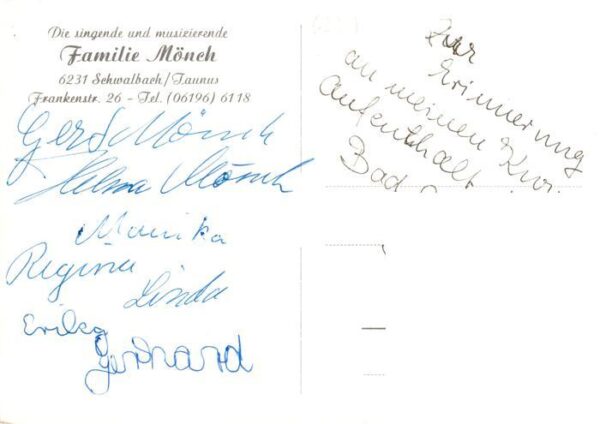 Die singende und musizierende
Familie Mönch
6231 Schwalbach/Taunus
Frankenstr. 26 - Tel. (06196) 6118
Gerd Mönch
Helma Mönch
Monika
Regina
Linda
Erika
Gerhard
Zur
Erinnerung
an meinen Kur
Aufenthalt
Bad